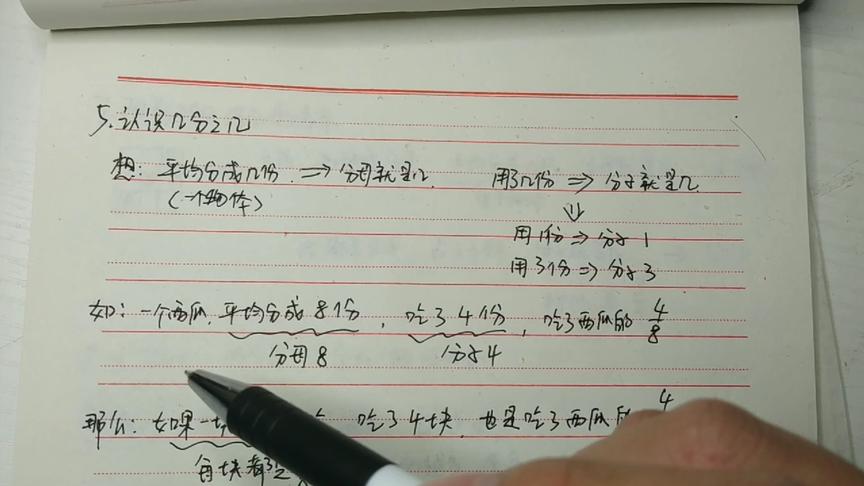 5.认识几分之几
想: 平均分成几份. ⇒ 分母就是几. 用了几份 ⇒ 分子就是几.
(一个物体) ⇓
用1份 ⇒ 分子1
用3份 ⇒ 分子3
如: 一个西瓜, 平均分成8份, 吃了4份, 吃了西瓜的 4/8
分母8 分子4
那么: 如果一 吃了4块, 也是吃了西瓜的 4
每块都是